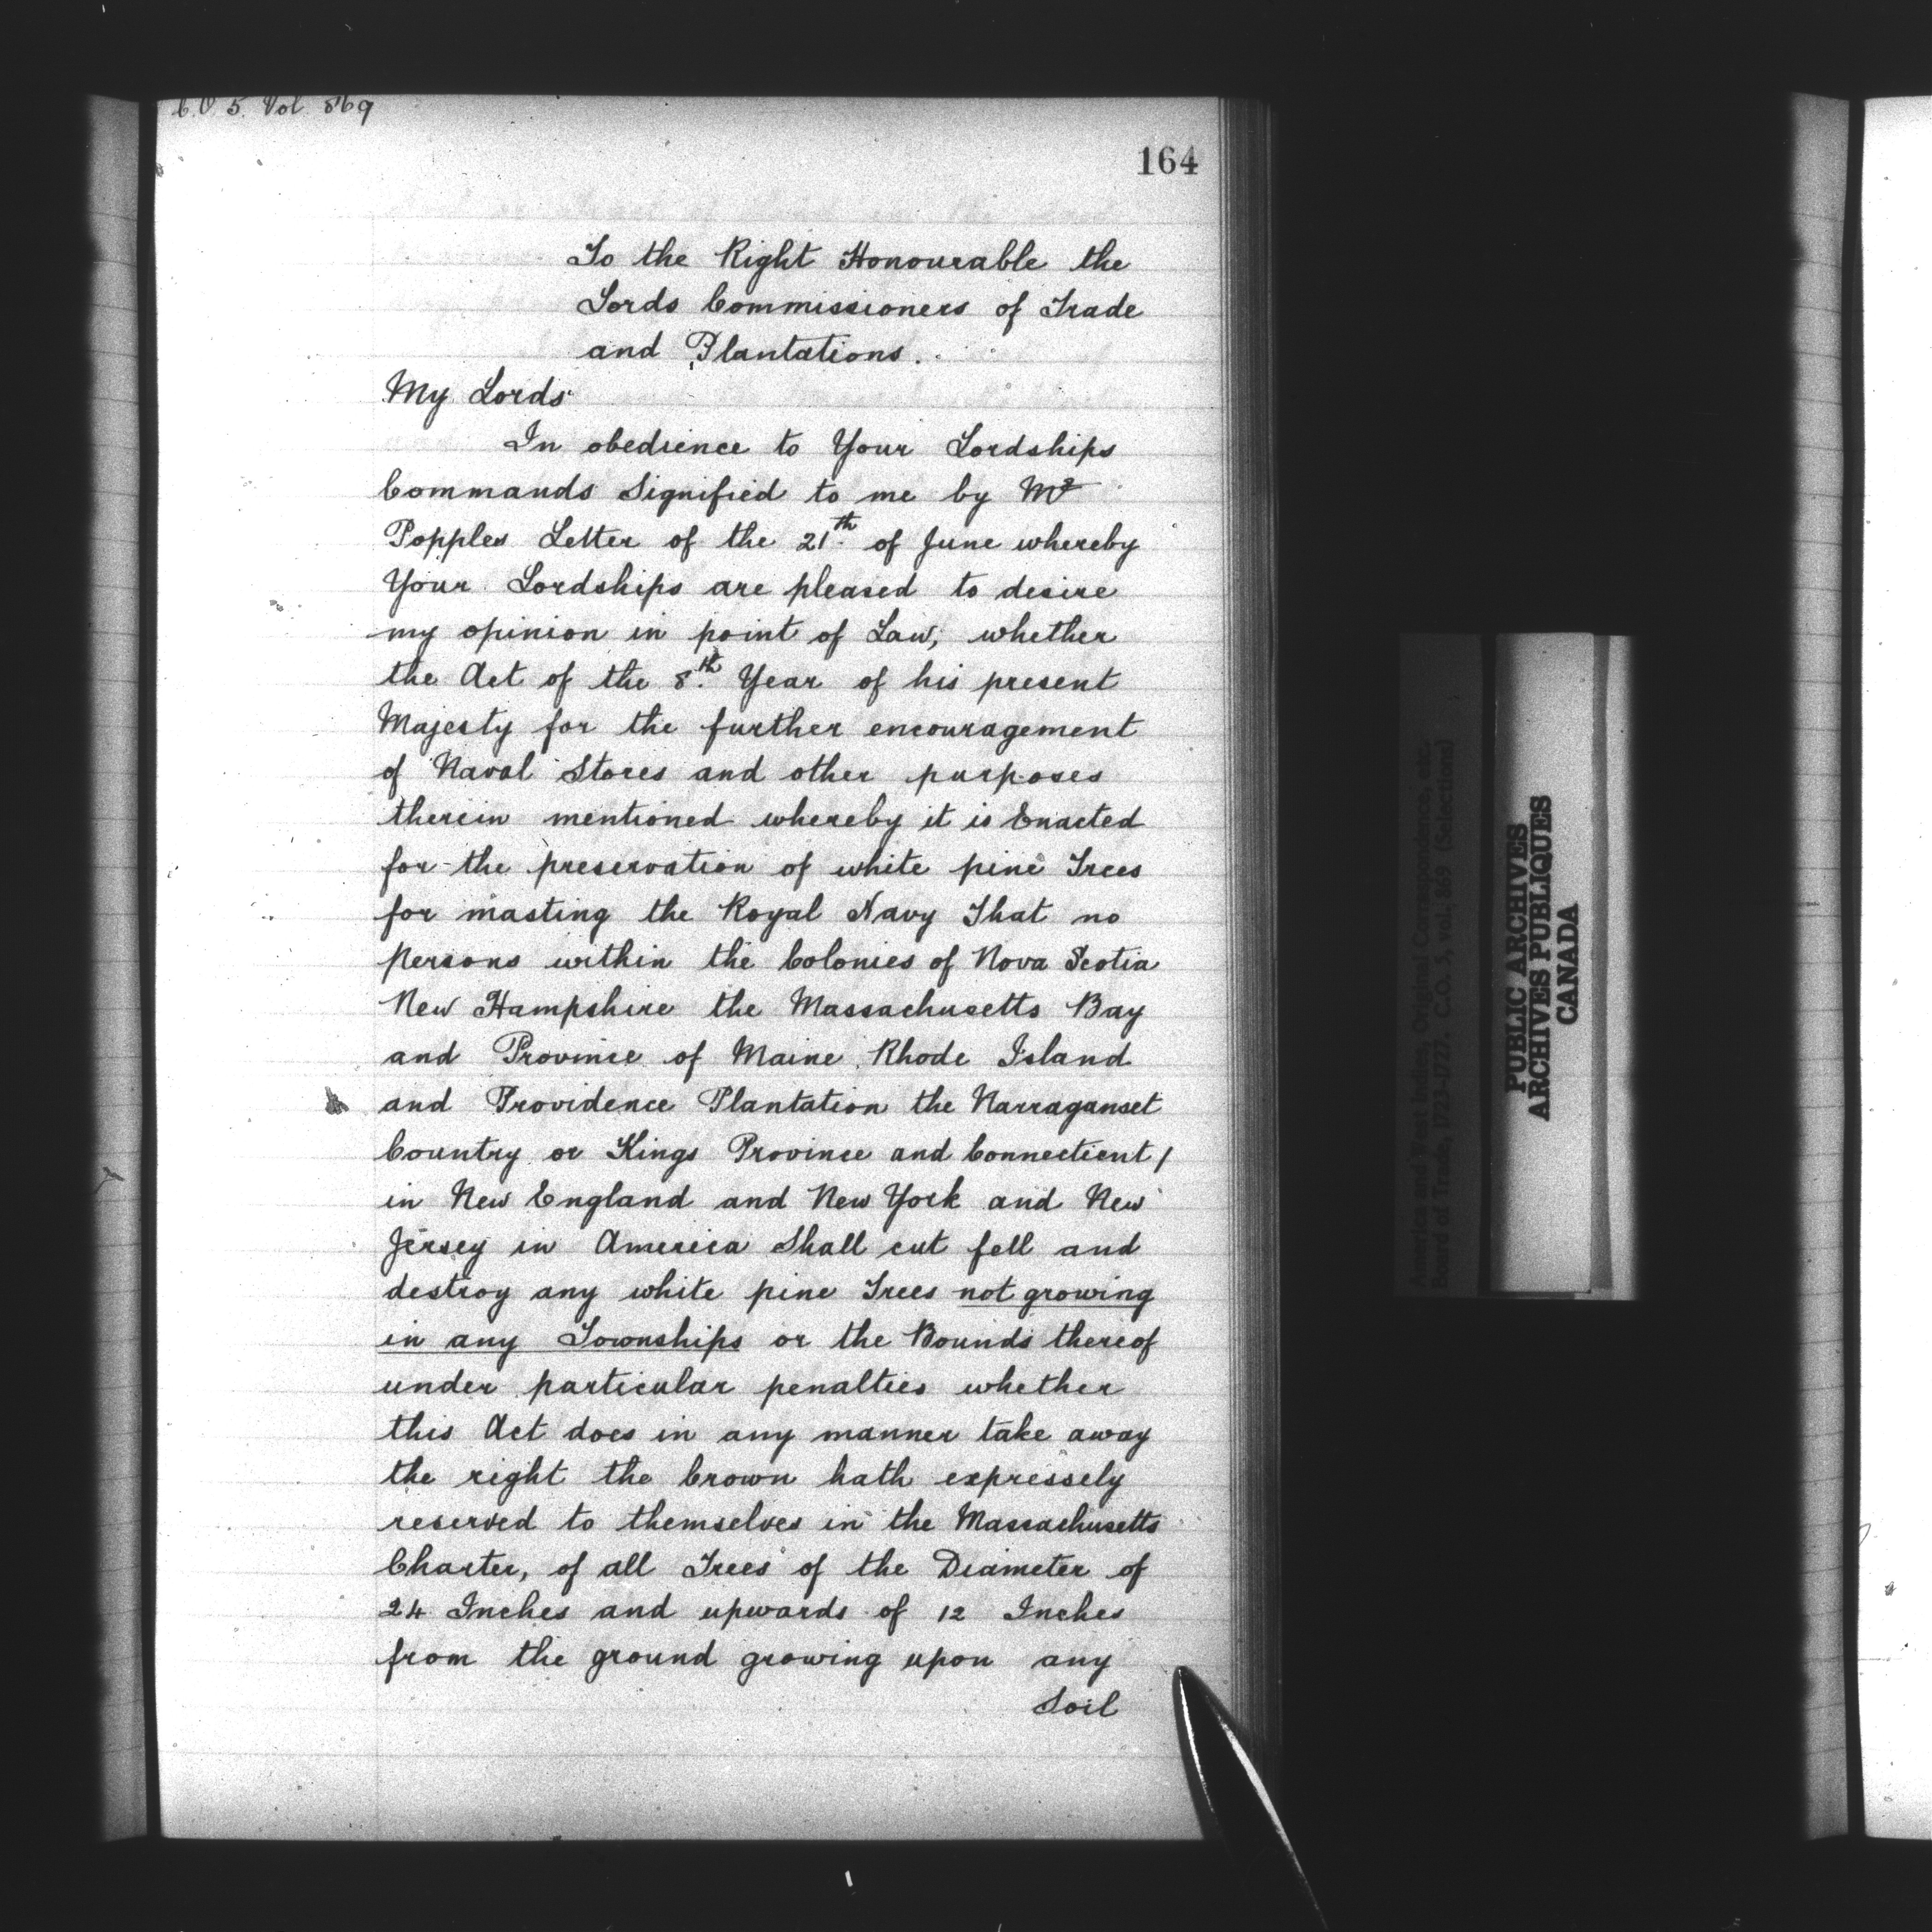 C.O. 5. Vol 869
164
To the Right Honourable the
Lords Commissioners of Trade
and Plantations.
My Lords
In obedience to Your Lordships
Commands Signified to me by Mr
Popples Letter of the 21th of June whereby
Your Lordships are pleased to desire
my opinion in point of Law, whether
the Act of the 8th Year of his present
Majesty for the further encouragement
of Naval Stores and other purposes
therein mentioned whereby it is Enacted
for the preservation of white pine Trees
for masting the Royal Navy That no
persons within the Colonies of Nova Scotia
New Hampshire the Massachusetts Bay
and Province of Maine Rhode Island
and Providence Plantation the Narraganset
Country or Kings Province and Connecticut /
in New England and New York and New
Jersey in America Shall cut fell and
destroy any white pine Trees not growing
in any Townships or the Bounds thereof
under particular penalties whether
this Act does in any manner take away
the right the Crown hath expressely
reserved to themselves in the Massachusetts
Charter, of all Trees of the Diameter of
24 Inches and upwards of 12 Inches
from the ground growing upon any
Soil
America and West Indies, Original Correspondence, etc.
Board of Trade, 1723-1727. C.O. 5, vol. 869 (Selections)
PUBLIC ARCHIVES
ARCHIVES PUBLIQUES
CANADA